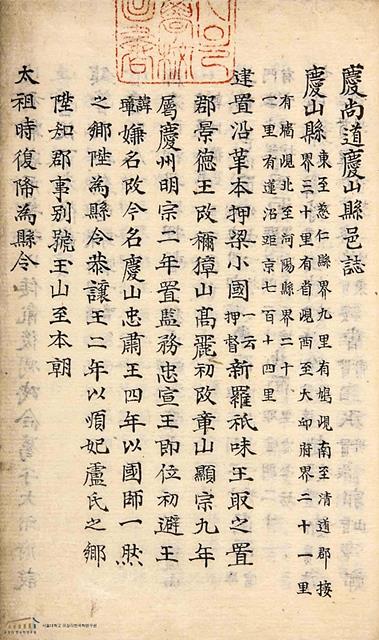 慶尚道慶山縣邑誌
慶山縣東至慈仁縣界九里有鳩峴南至清道郡接
界三十里有首峴西至大卯府界二十一里
有磧峴北至河陽縣界二十
二里有蓮沼距京七百十四里
建置沿革本押梁小國一云押督新羅祇味王取之置
郡景德王改稱獐山高麗初改章山顯宗九年
屬慶州明宗二年置監務忠宣王即位初避王
諱璋嫌名改今名慶山忠肅王四年以國師一然
之鄉陞為縣令恭讓王二年以順妃盧氏之鄉
陞知郡事別號玉山至本朝
太祖時復降為縣令
서울대학교 규장각한국학연구원